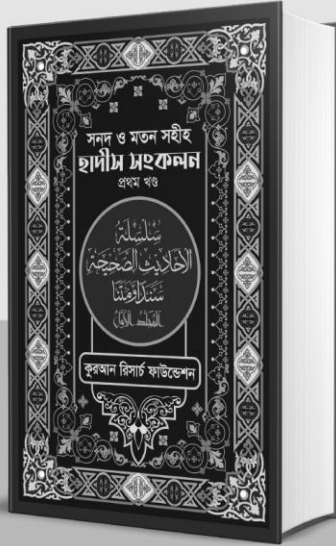 সনদ ও মতন সহীহ
হাদীস সংকলন
প্রথম খণ্ড
سِلْسِلَةُ
الْأَحَادِيْثِ الصَّحِيْحَةِ
سَنَدًا وَمَتْنًا
اَلْمُجَلَّدُ الْأَوَّلُ
কুরআন রিসার্চ ফাউন্ডেশন